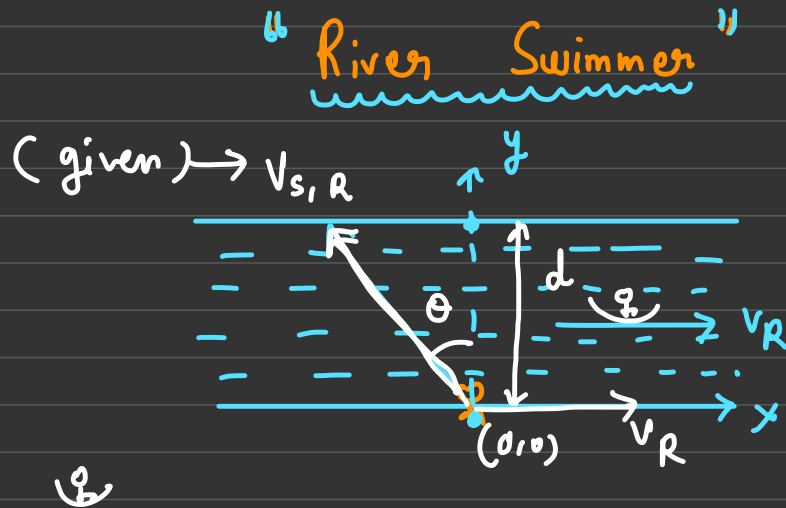 " River Swimmer "
(given) → V_S,R
y
θ
d
V_R
x
(0,0)
V_R